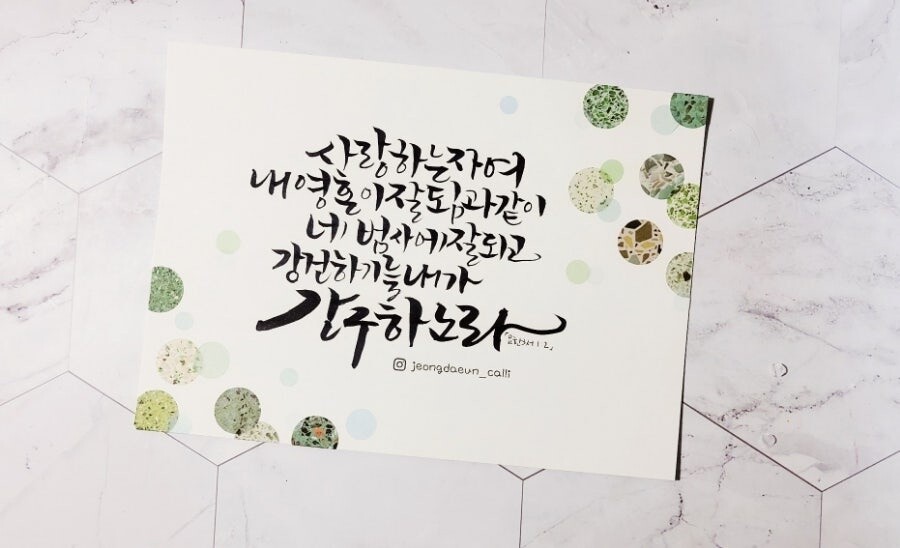 사랑하는자여
내영혼이잘됨과같이
네 범사에잘되고
강건하기를내가
간구하노라
jeongdaeun_calli